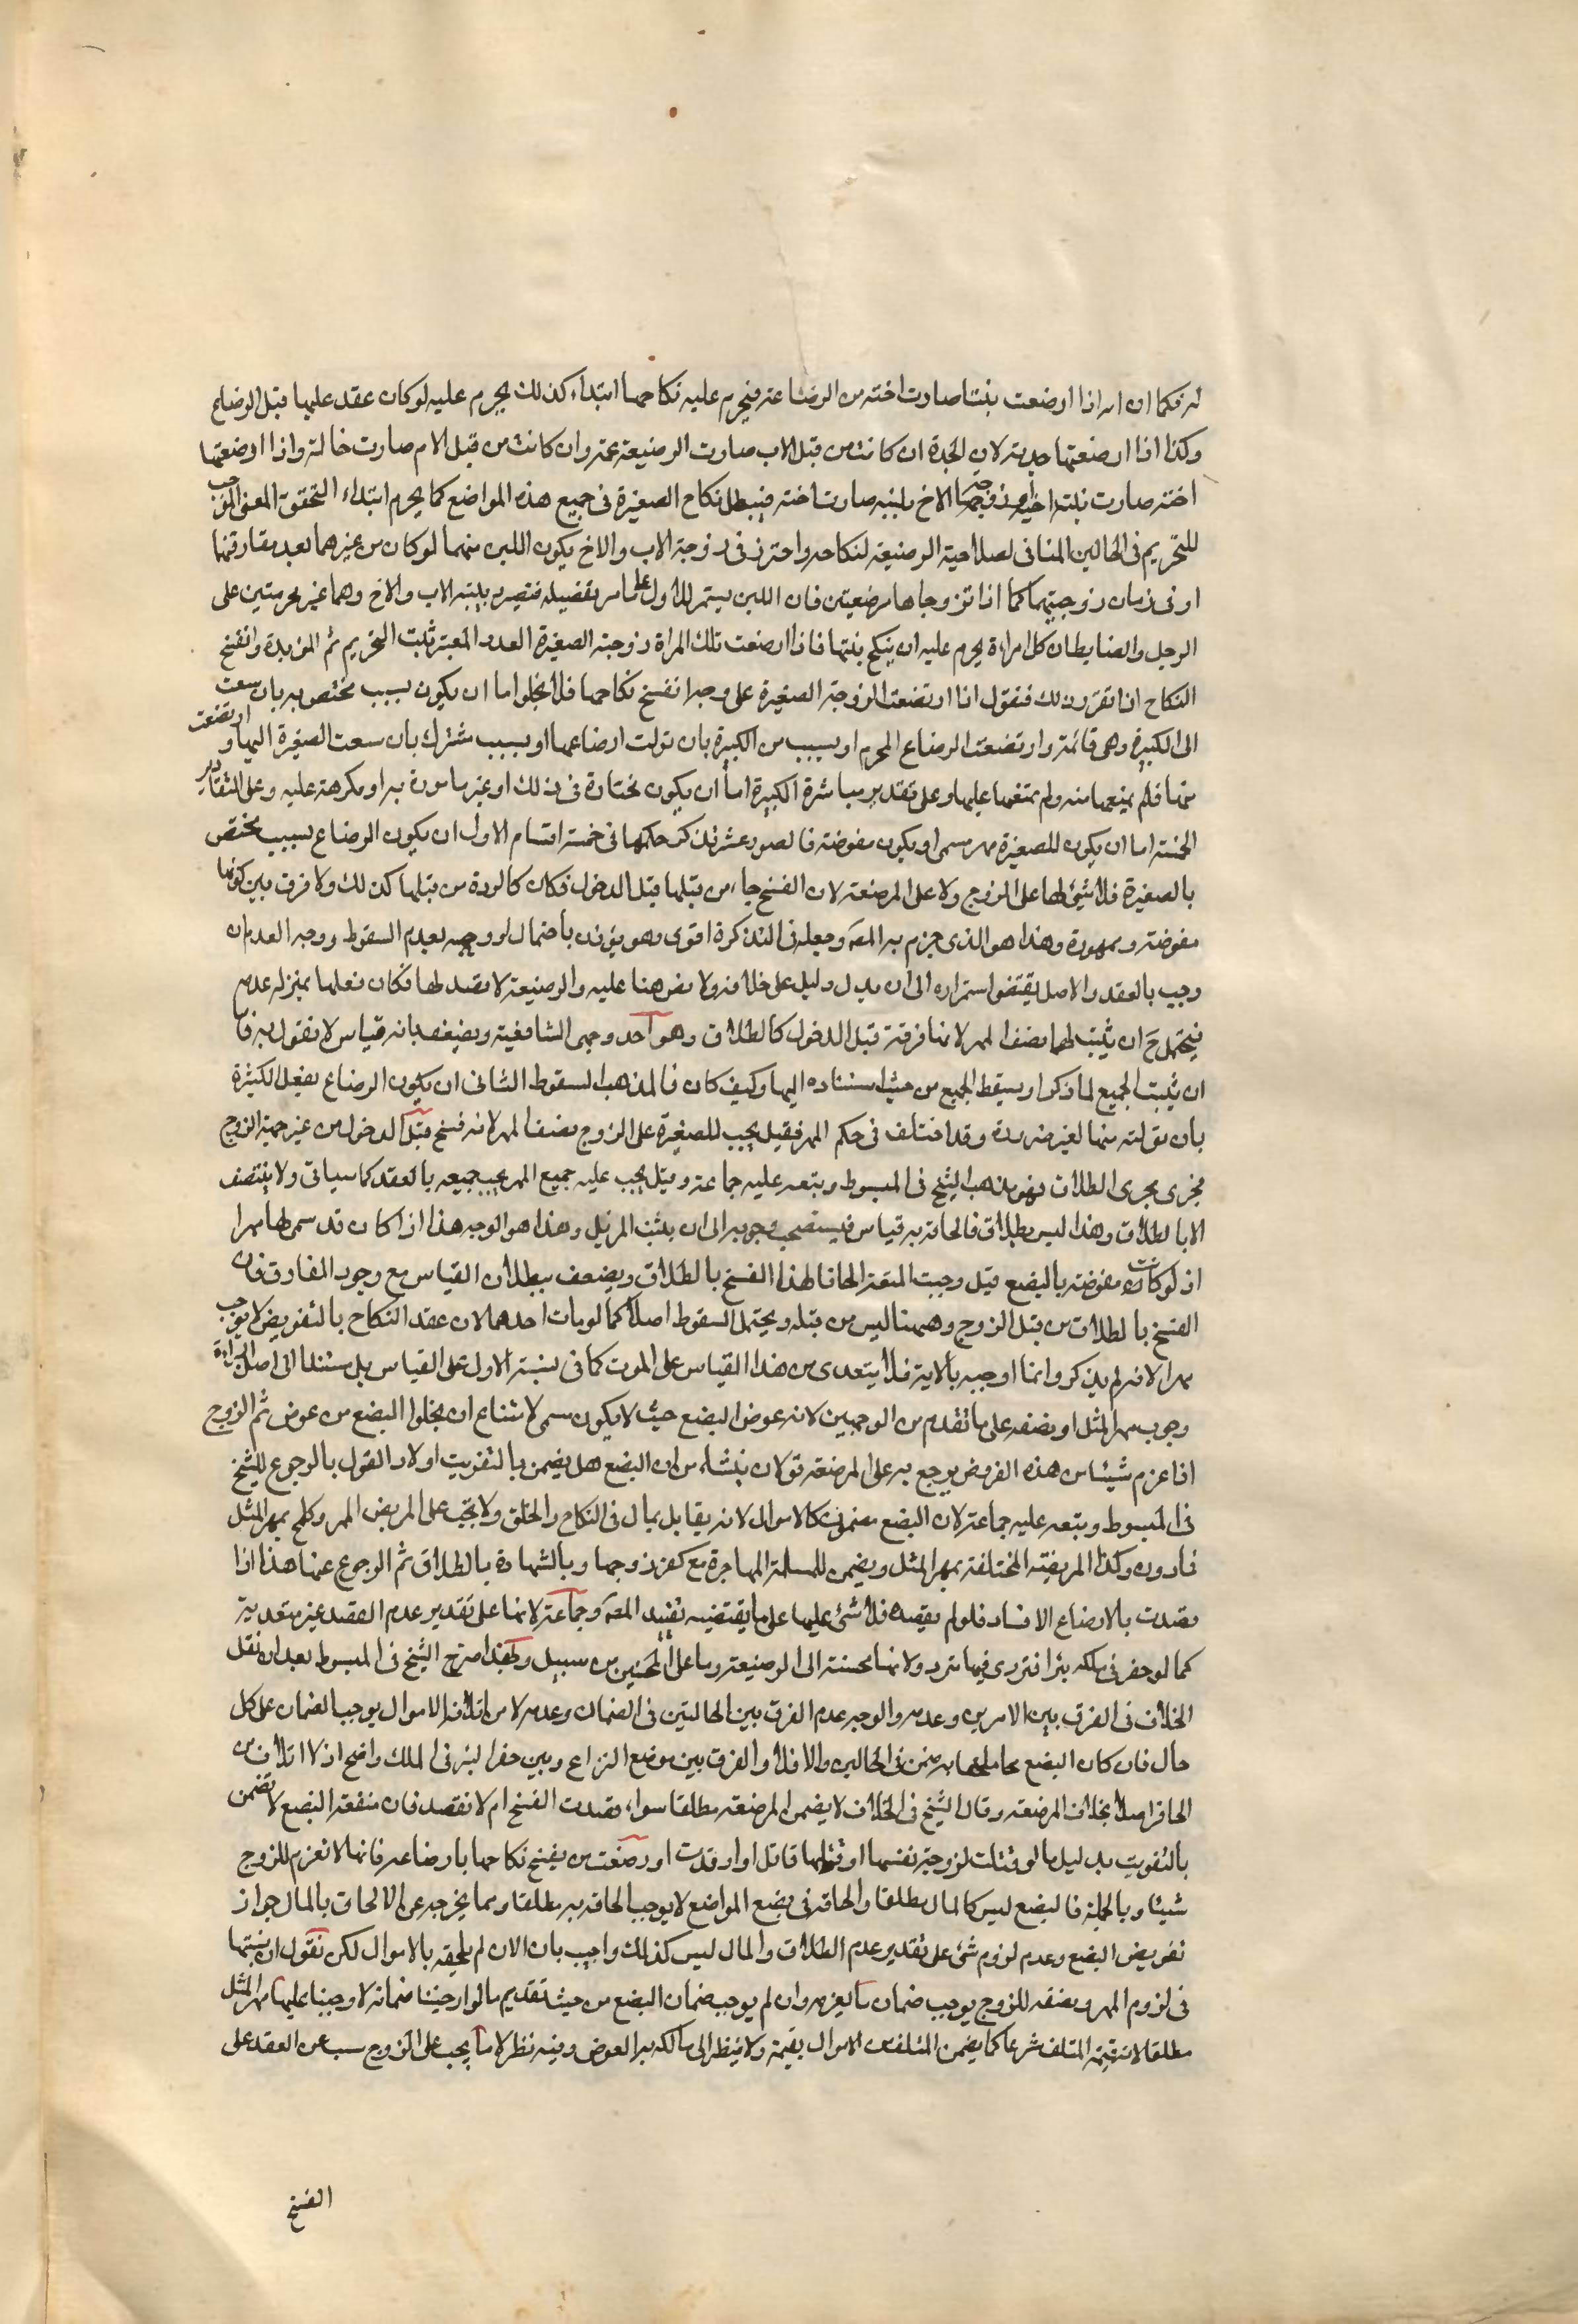 له فكما ان امه اذا ارضعت بنتا صارت اخته من الرضاعة فيحرم عليه نكاحها ابتداء كذلك يحرم عليه لو كان عقد عليها قبل الرضاع
وكذا اذا ارضعتها جدته لان الجدة ان كانت من قبل الاب صارت الرضيعة عمته وان كانت من قبل الام صارت خالته واذا ارضعتها
اخته صارت بنت اخته زوجة الاخ بلبنه صارت اخته فيبطل نكاح الصغيرة في جميع هذه المواضع كما يحرم ابتداء لتحقق المعنى الموجب
للتحريم في الحالين المنافي لصلاحية الرضيعة لنكاحه واحترز في زوجة الاب والاخ بكون اللبن منهما لو كان من غيرهما بعد مفارقتها
او في زمان زوجيتهما كما اذا تزوجاها مرضعتين فان اللبن يستمر للاول على ما مر تفصيله فتصير بلبنه الاب والاخ وهما غير محرمتين على
الرجل والضابط ان كل امراة يحرم عليه ان ينكح بنتها فاذا ارضعت تلك المراة زوجته الصغيرة العدد المعتبر ثبت التحريم ثم المؤبدة وانفسخ
النكاح اذا تقرر ذلك فنقول اذا ارتضعت الزوجة الصغيرة على وجه انفسخ نكاحها فلا يخلو اما ان يكون بسبب مختص به بان سعت
الى الكبيرة وهي نائمة وارتضعت الرضاع المحرم او بسبب من الكبيرة بان تولت ارضاعها او بسبب مشترك بان سعت الصغيرة اليها وارتضعت
منها فلم يمنعها منه ولم تمنعها عليها وعلى تقدير مباشرة الكبيرة اما ان يكون مختارة في ذلك او غير مامورة به او مكرهة عليه وعلى التقادير
الخمسة اما ان يكون للصغيرة مهر مسمى او يكون مفوضة فالصور عشر نذكر حكمها في خمسة اقسام الاول ان يكون الرضاع بسبب يختص
بالصغيرة فلا شيء لها على الزوج ولا على المرضعة لان الفسخ جاء من قبلها قبل الدخول فكان كالردة من قبلها كذلك ولا فرق بين كونها
مفوضة وممهورة وهذا هو الذي جزم به المصـ وجعله في التذكرة اقوى وهو يؤذن باحتمال او وجه بعدم السقوط ووجه العدم ان
وجب بالعقد والاصل يقتضي استمراره الى ان يدل دليل على خلافه ولا نص هنا عليه والرضيعة لا قصد لها فكان فعلها بمنزلة عدمه
فيحتمل ح ان يثبت لها نصف المهر لانها فرقة قبل الدخول كالطلاق وهو احد وجهي الشافعية ويضعف بانه قياس لا نقول به فاما
ان يثبت الجميع لما ذكر او يسقط الجميع من حيث استناده اليها وكيف كان فالمذهب السقوط الثاني ان يكون الرضاع بفعل الكبيرة
بان تولته منها لغير ضرورة وقد اختلف في حكم المهر فقيل يجب للصغيرة على الزوج نصف المهر لانه فسخ قبل الدخول من غير جهة الزوج
فجرى مجرى الطلاق فهو مذهب الشيخ في المبسوط وتبعه عليه جماعة وقيل يجب عليه جميع المهر يجب جميعه بالعقد كما سياتي ولا ينتصف
الا بالطلاق وهذا ليس بطلاق فالحاقه به قياس فيستصحب وجوبه الى ان يثبت المزيل وهذا هو الوجه هذا اذا كان قد سمى لها مهرا
اذ لو كانت مفوضة بالبضع قيل وجبت المتعة الحاقا لهذا الفسخ بالطلاق ويضعف ببطلان القياس مع وجود المفارق فان
الفسخ بالطلاق من قبل الزوج وههنا ليس من قبله ويحتمل السقوط اصلا كما لو مات احدهما لان عقد النكاح بالتفويض لا يوجب
مهرا لانه لم يذكر وانما اوجبه بالاية فلا يتعدى من هذا القياس على الموت كما في نسبة الاول على القياس بل مستندا الى اصل البراءة
وجوب مهر المثل او نصفه على ما تقدم من الوجهين لانه عوض البضع حيث لا يكون مسمى لامتناع ان يخلو البضع من عوض ثم الزوج
اذا غرم شيئا من هذه الفروض يرجع به على المرضعة قولان ينشاء من ان البضع هل يضمن بالتفويت اولا والقول بالرجوع للشيخ
في المبسوط وتبعه عليه جماعة لان البضع مضمون كالاموال لانه يقابل بمال في النكاح والخلع ولا يجب على المريض المهر وكل حج بمهر المثل
فادون وكذا المريضة المختلعة بمهر المثل ويضمن للمسلمة المهاجرة مع كفر زوجها وبالشهادة بالطلاق ثم الرجوع عنها هذا اذا
قصدت بالارضاع الافساد فلو لم تقصده فلا شيء عليها على ما يقتضيه تقييد المصـ وجماعة لانها على تقدير عدم القصد غير متعدية
كما لو حفر في ملكه بئرا فتردى فيها متردد ولانها محسنة الى الرضيعة وما على المحسنين من سبيل وهكذا صرح الشيخ في المبسوط بعد ان نقل
الخلاف في الفرق بين الامرين وعدمه والوجه عدم الفرق بين الحالتين في الضمان وعدمه لان اتلاف الاموال يوجب الضمان على كل
حال فان كان البضع معاملا بها به ضمن في الحالين والا فلا والفرق بين موضع النزاع وبين حفر البئر في الملك واضح اذ لا اتلاف من
الحافر اصلا بخلاف المرضعة وقال الشيخ في الخلاف لا يضمن المرضعة مطلقا سواء قصدت الفسخ ام لا تقصد فان منفعة البضع لا تضمن
بالتفويت بدليل ما لو قتلت الزوجة نفسها او قتلها قاتل او ارتدت او رضعت من يفسخ نكاحها بارضاعه فانها لا تغرم للزوج
شيئا وبالجملة فالبضع ليس كالمال مطلقا والحاقه في بعض المواضع لا يوجب الحاقه به مطلقا ومما يخرجه عن الالحاق بالمال جواز
تفويض البضع وعدم لزوم شيء على تقدير عدم الطلاق والمال ليس كذلك واجيب بان الان لم يلحقه بالاموال لكن نقول ان تسببها
في لزوم المهر ونصفه للزوج يوجب ضمان ما يغرمه وان لم يوجب ضمان البضع من حيث تقديم ما لو ارجبنا ضمانه لاوجبنا عليها مهر المثل
مطلقا لانه قيمة المتلف شرعا كما يضمن المتلف من الاموال بقيمة ولا ينظر الى مالكه به العوض وفيه نظر لان ما يجب على الزوج مسبب عن العقد على
الفسخ